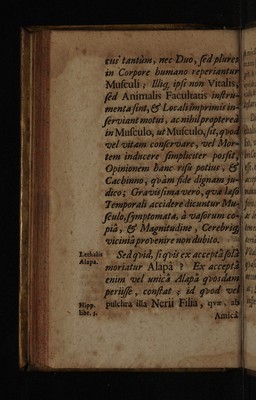 eus tantùm, nec Duo, sed plures
in Corpore humano reperiantur
Musculi; Illiq, ipsi non Vitalis,
sed Animalis Facultatis instru-
menta sint, & Locali Imprimis in-
serviant motui, ac nihil proptereà
in Musculo, ut Musculo, sit, quod
vel vitam conservare, vel Mor-
tem inducere simpliciter possit,
Opinionem hanc risu potius, &
Cachinno, quàm fide dignam ju-
dico; Gravissima vero, quæ læso
Temporali accidere dicuntur Mu-
sculo, symptomata, à vasorum co-
piâ, & Magnitudine, Cerebriq,
viciniâ provenire non dubito.
Lethalis
Alapa.
Sed quid, si quis ex acceptâ solâ
moriatur Alapâ? Ex acceptâ
enim vel unicâ Alapâ quosdam
periisse, constat; id quod vel
Hipp.
libr. 5.
pulchra illa Nerii Filia, quæ, ab
Amicâ